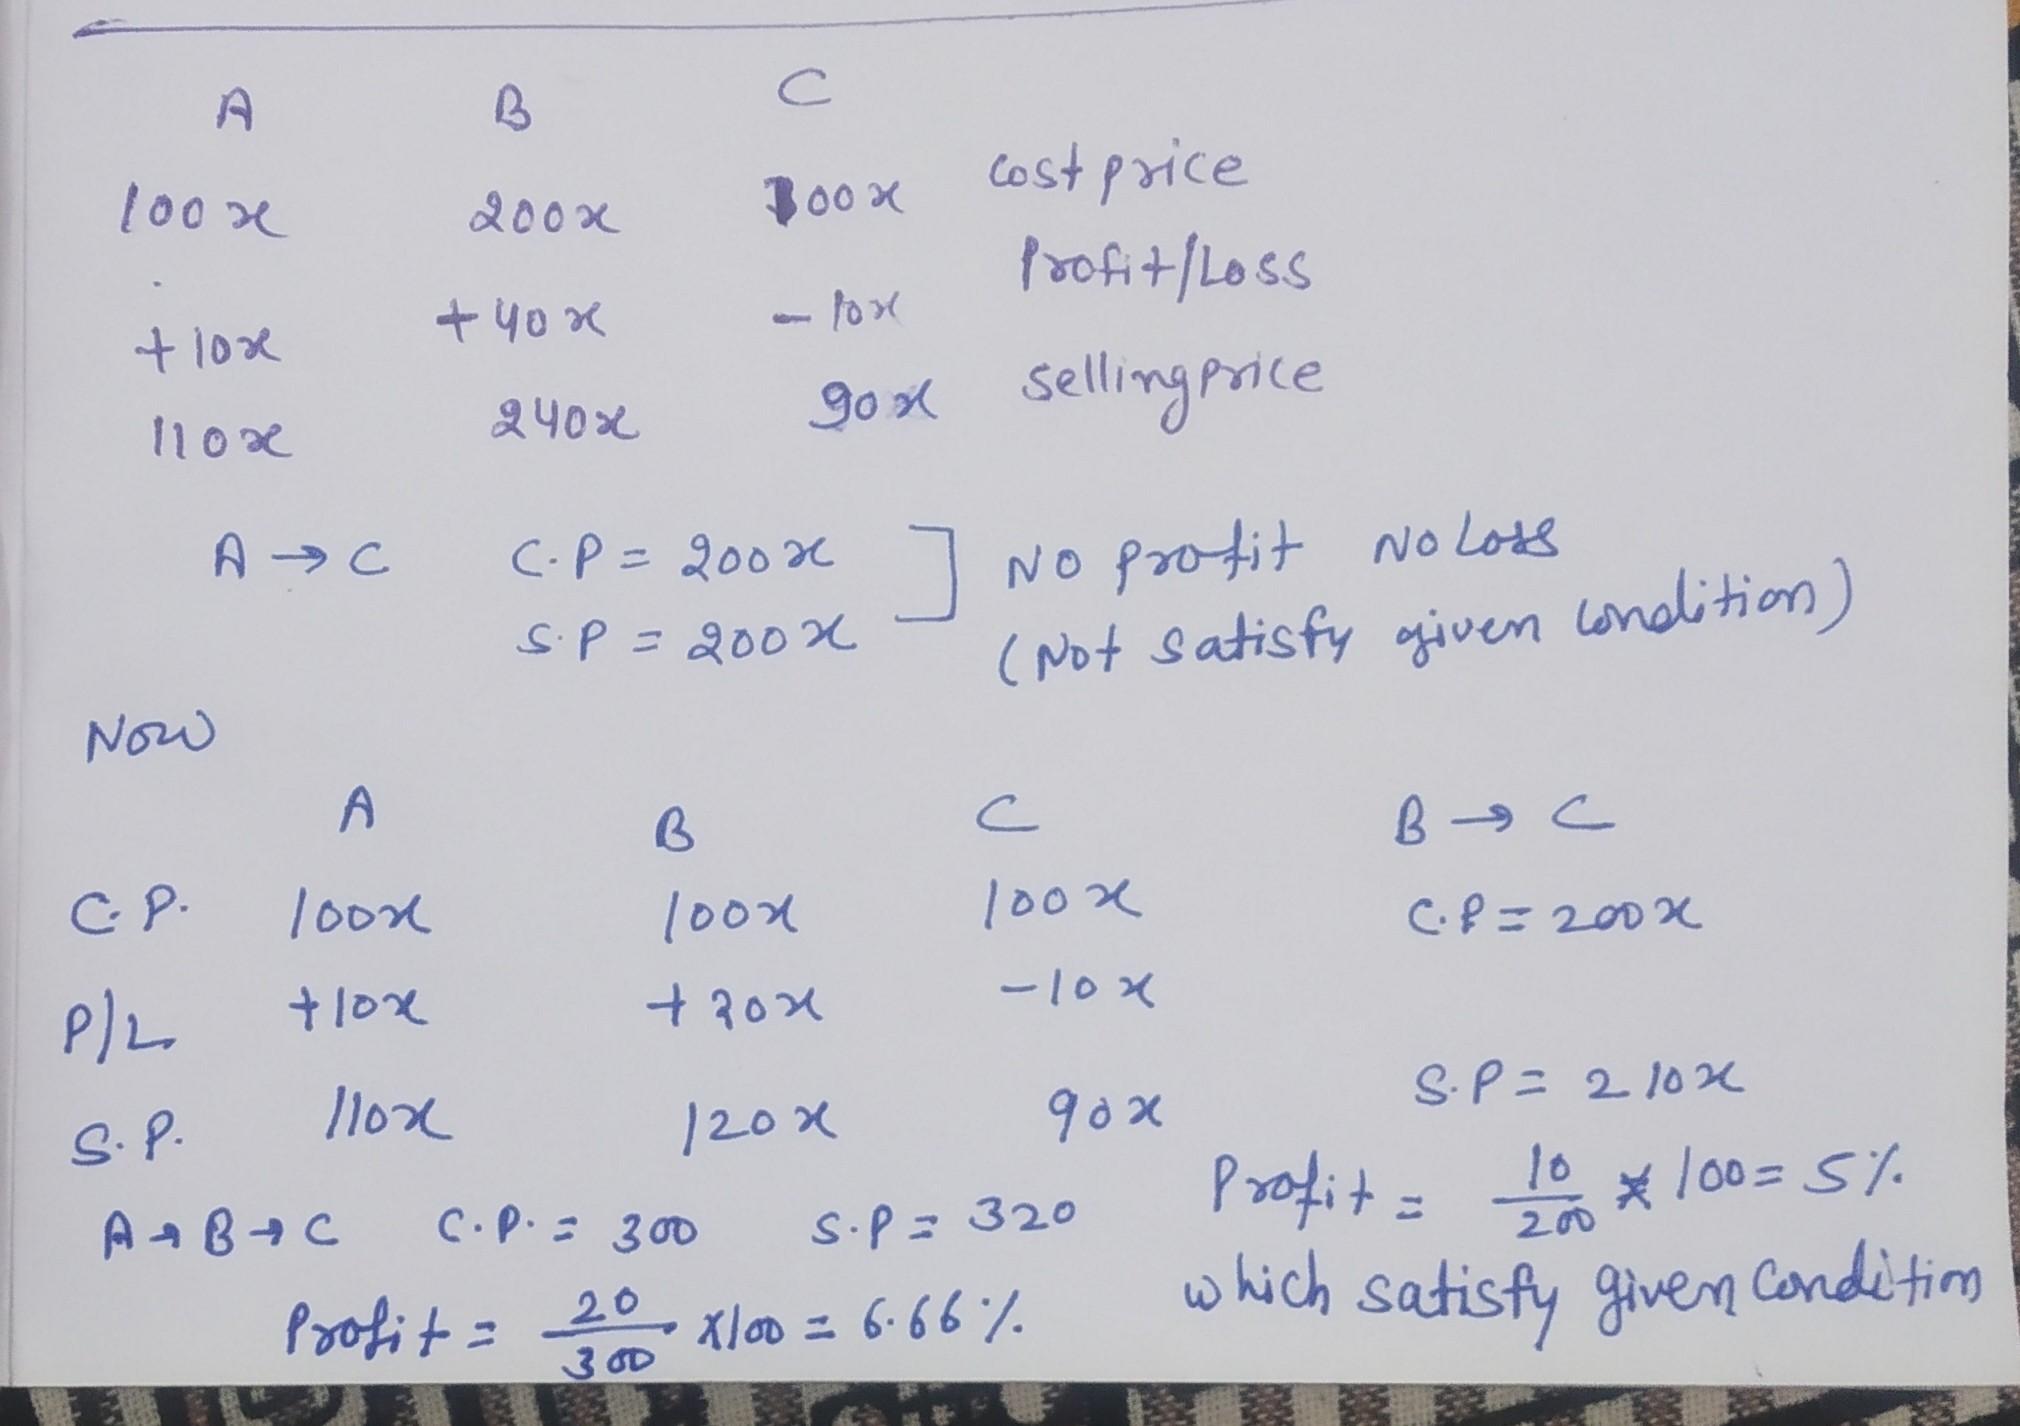 A B C
100x 200x 100x cost price
+10x +40x -10x Profit/Loss
110x 240x 90x selling price
A → C C.P = 200x ] No profit No Loss
S.P = 200x (Not satisfy given condition)
Now
A B C B → C
C.P. 100x 100x 100x C.P = 200x
P/L +10x +20x -10x
S.P. 110x 120x 90x S.P = 210x
A → B → C C.P. = 300 S.P = 320 Profit = 10/200 * 100 = 5%
Profit = 20/300 x100 = 6.66% which satisfy given Condition